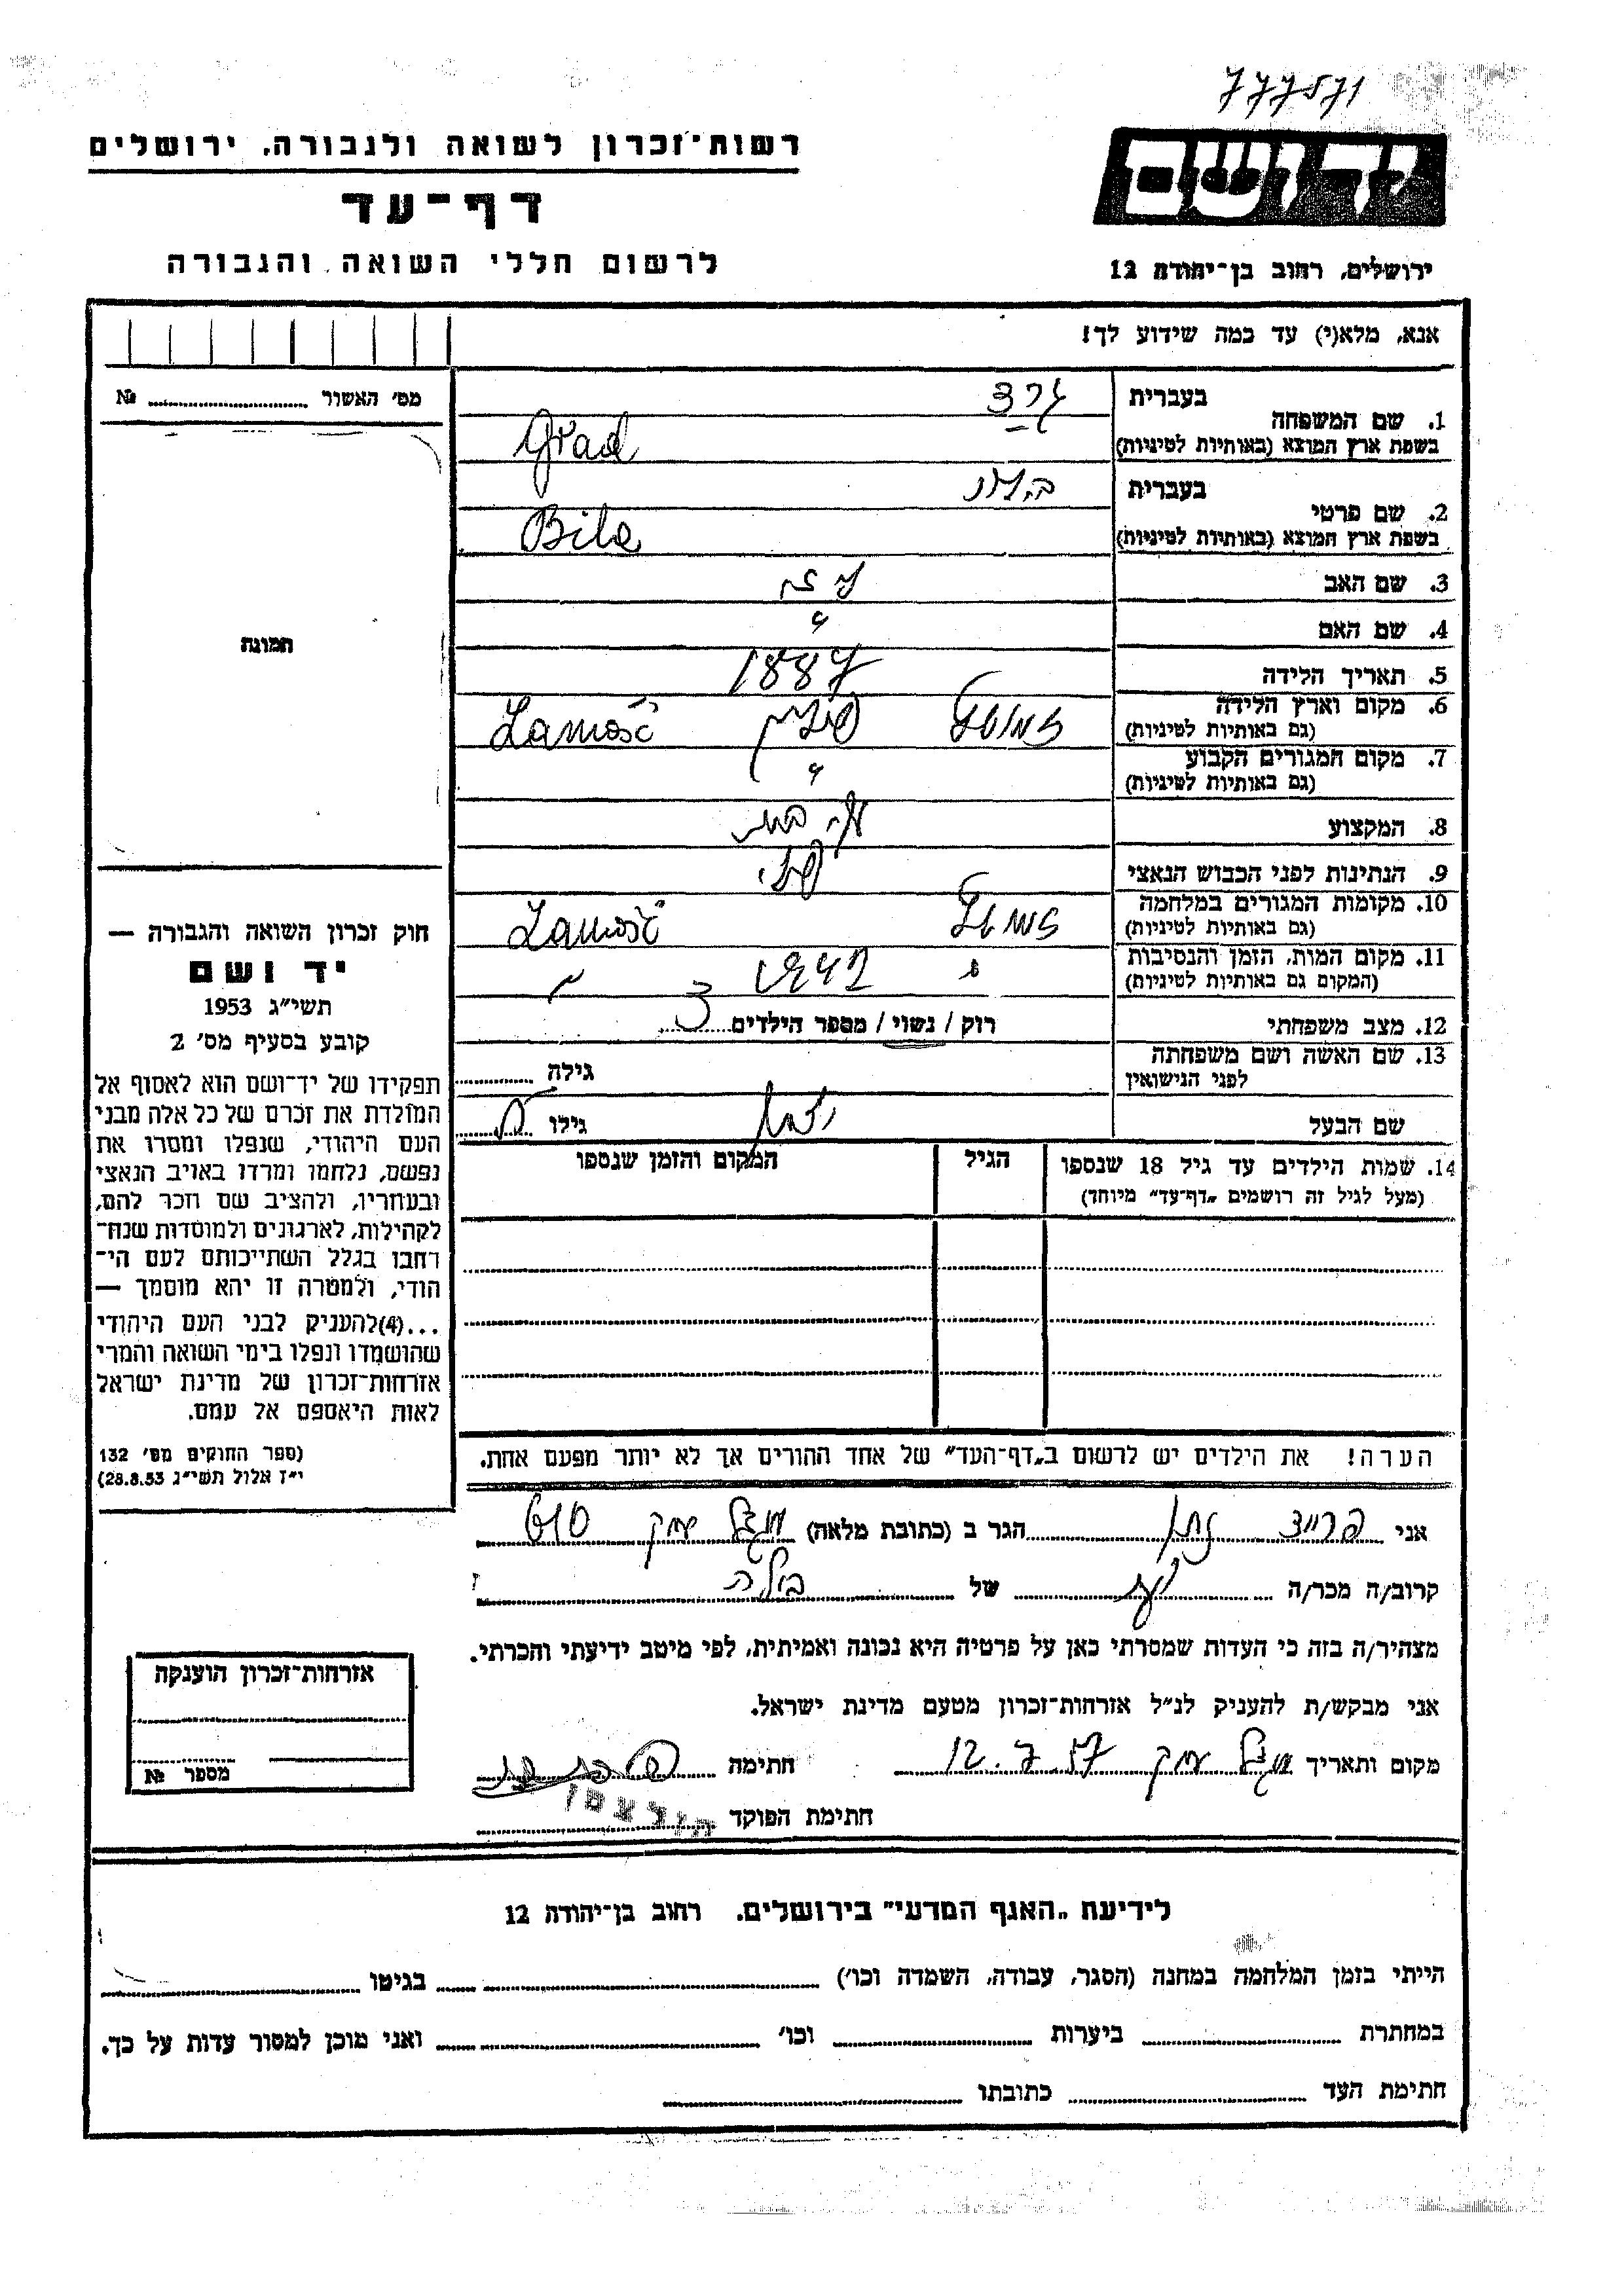 777571
רשות־זכרון לשואה ולגבורה, ירושלים
יד ושם
דף־עד
לרשום חללי השואה והגבורה
ירושלים, רחוב בן־יהודה 12
אנא, מלא(י) עד כמה שידוע לך!
מס׳ האשור № 
בעברית גרד
1. שם המשפחה
בשפת ארץ המוצא (באותיות לטיניות) Grad
בעברית
2. שם פרטי
בשפת ארץ המוצא (באותיות לטיניות) Bila
3. שם האב
4. שם האם
5. תאריך הלידה 1887
6. מקום וארץ הלידה זמושץ פולין Zamość
(גם באותיות לטיניות)
7. מקום המגורים הקבוע
(גם באותיות לטיניות)
8. המקצוע
9. הנתינות לפני הכבוש הנאצי
10. מקומות המגורים במלחמה Zamość
(גם באותיות לטיניות)
11. מקום המות, הזמן והנסיבות 1942
(המקום גם באותיות לטיניות)
12. מצב משפחתי רוק / נשוי / מספר הילדים 3
13. שם האשה ושם משפחתה גילה
לפני הנישואין
שם הבעל גילו
תמונה
חוק זכרון השואה והגבורה —
יד ושם
תשי״ג 1953
קובע בסעיף מס׳ 2
תפקידו של יד־ושם הוא לאסוף אל
המולדת את זכרם של כל אלה מבני
העם היהודי, שנפלו ומסרו את
נפשם, נלחמו ומרדו באויב הנאצי
ובעוזריו, ולהציב שם וזכר להם,
לקהילות, לארגונים ולמוסדות שנח־
רבו בגלל השתייכותם לעם הי־
הודי, ולמטרה זו יהא מוסמך —
...(4)להעניק לבני העם היהודי
שהושמדו ונפלו בימי השואה והמרי
אזרחות־זכרון של מדינת ישראל
לאות היאספם אל עמם.
(ספר החוקים מס׳ 132
י״ז אלול תשי״ג 28.8.53)
14. שמות הילדים עד גיל 18 שנספו הגיל המקום והזמן שנספו
(מעל לגיל זה רושמים „דף־עד״ מיוחד)
הערה! את הילדים יש לרשום ב„דף־העד״ של אחד ההורים אך לא יותר מפעם אחת.
אני פרייד נתן הגר ב (כתובת מלאה) מגדל עמק
קרוב/ה מכר/ה של בילה
מצהיר/ה בזה כי העדות שמסרתי כאן על פרטיה היא נכונה ואמיתית, לפי מיטב ידיעתי והכרתי.
אני מבקש/ת להעניק לנ״ל אזרחות־זכרון מטעם מדינת ישראל.
מקום ותאריך מגדל עמק 12.7.57 חתימה
חתימת הפוקד
אזרחות־זכרון הוענקה
מספר №
לידיעת „האגף המדעי״ בירושלים, רחוב בן־יהודה 12
הייתי בזמן המלחמה במחנה (הסגר, עבודה, השמדה וכו׳) בגיטו
במחתרת ביערות וכו׳ ואני מוכן למסור עדות על כך.
חתימת העד כתובתו